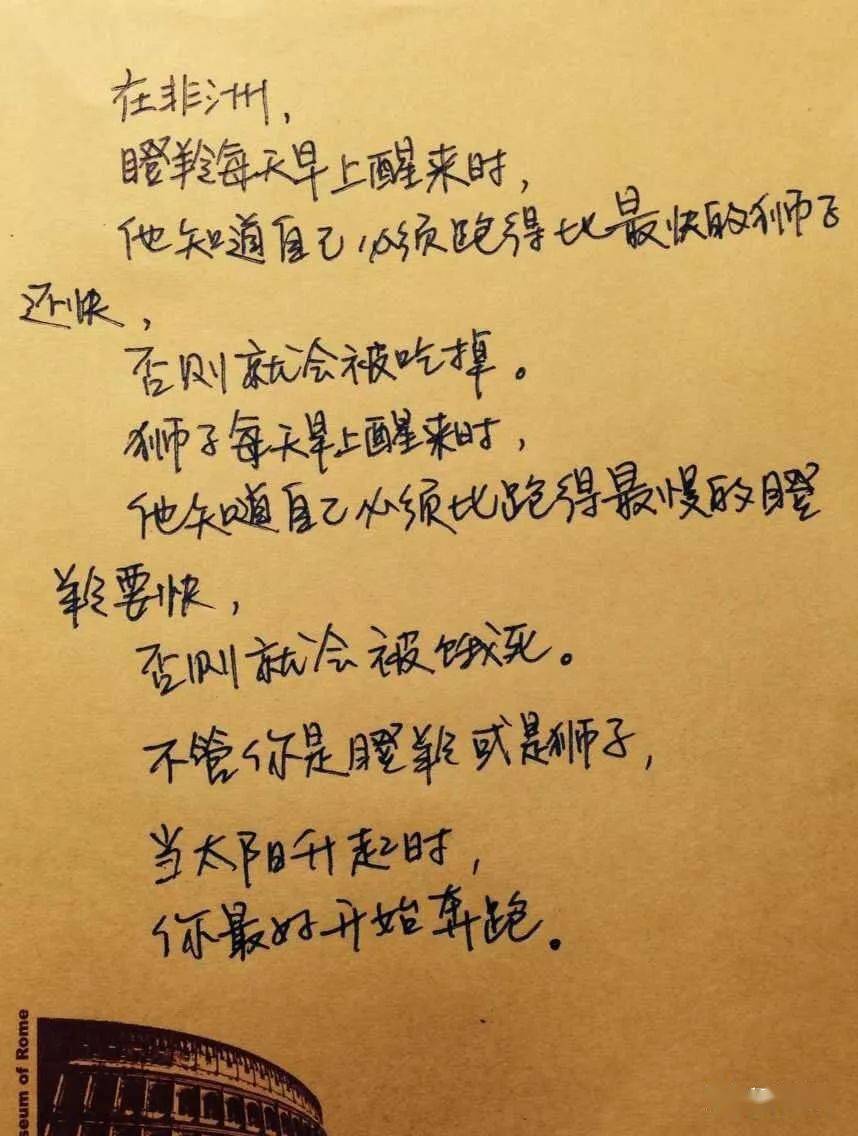 在非洲,
瞪羚每天早上醒来时,
他知道自己必须跑得比最快的狮子
还快,
否则就会被吃掉。
狮子每天早上醒来时,
他知道自己必须比跑得最慢的瞪
羚要快,
否则就会被饿死。
不管你是瞪羚或是狮子,
当太阳升起时,
你最好开始奔跑。
seum of Rome